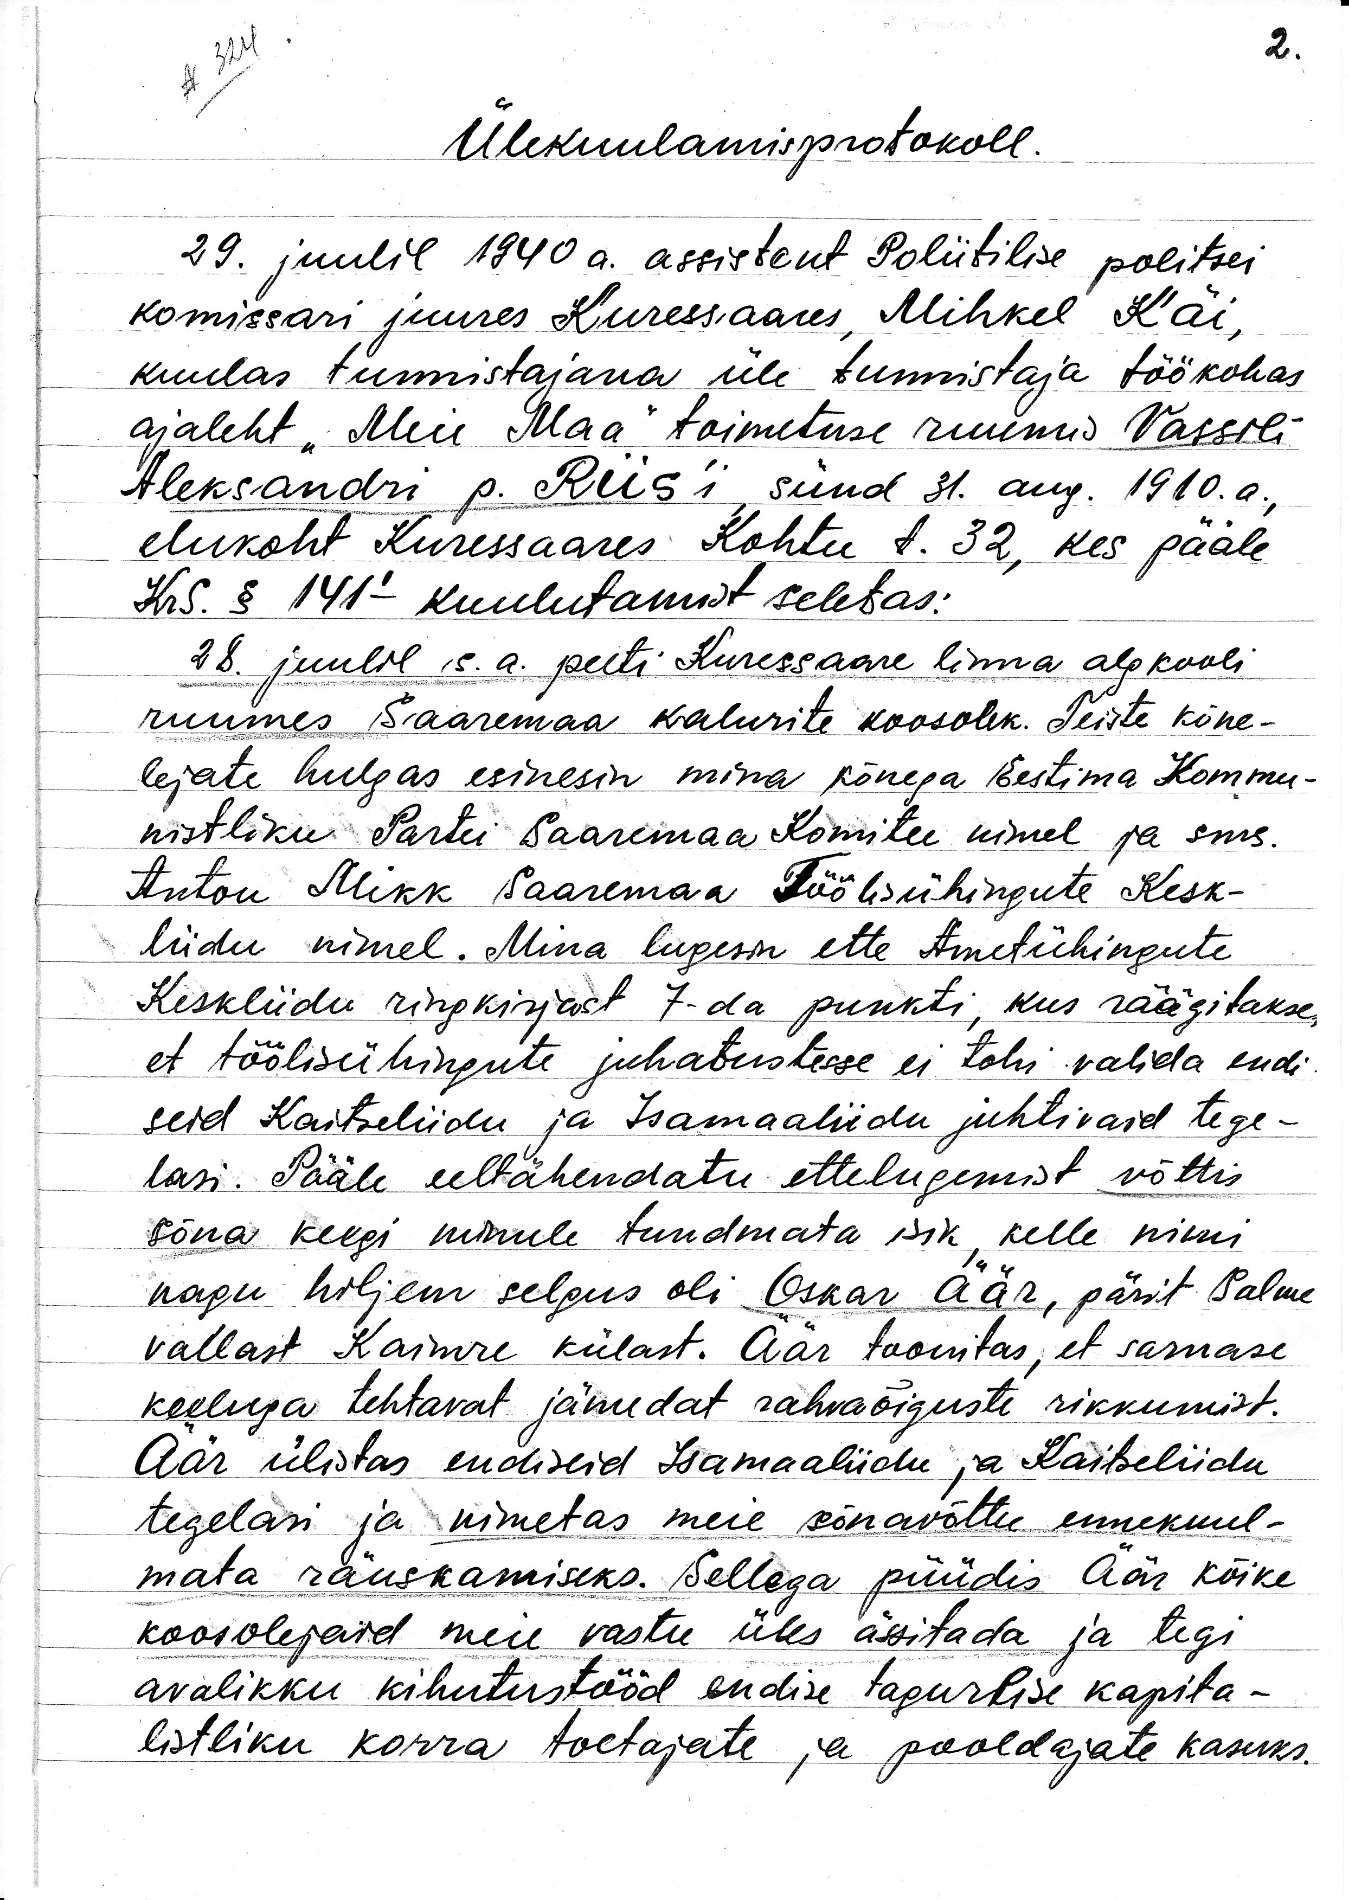 A 324.
2.
Ülekuulamisprotokoll.
29. juulil 1940 a. assistent Poliitilise politsei
komissari juures Kuressaares, Mihkel Käi,
kuulas tunnistajana üle tunnistaja töökohas
ajaleht „Meie Maa" toimetuse ruumis Vassili
Aleksandri p. Riis'i, sünd 31. aug. 1910. a.,
elukoht Kuressaares Kohtu t. 32, kes pääle
KrS. § 141¹ kuulutamist seletas:
28. juulil s. a. peeti Kuressaare linna algkooli
ruumes Saaremaa kalurite koosolek. Teiste kõne-
lejate hulgas esinesin mina kõnega Eestima Kommu-
nistliku Partei Saaremaa Komitee nimel ja sms.
Anton Mikk Saaremaa Töölisühingute Kesk-
liidu nimel. Mina lugesin ette Ametühingute
Keskliidu ringkirjast 7-da punkti, kus räägitakse,
et töölisühingute juhatustesse ei tohi valida endi
seid Kaitseliidu ja Isamaaliidu juhtivaid tege-
lasi. Pääle eeltähendatu ettelugemist võttis
sõna keegi minule tundmata isik, kelle nimi
nagu hiljem selgus oli Oskar Äär, pärit Salme
vallast Kaimre külast. Äär toonitas, et sarnase
keeluga tehtavat jämedat rahvaõiguste rikkumist.
Äär ülistas endiseid Isamaaliidu ja Kaitseliidu
tegelasi ja nimetas meie sõnavõttu ennekuul-
mata räuskamiseks. Sellega püüdis Äär kõike
koosolejaid meie vastu üles ässitada ja tegi
avalikku kihutustööd endise tagurlise kapita-
listliku korra toetajate ja pooldajate kasuks.